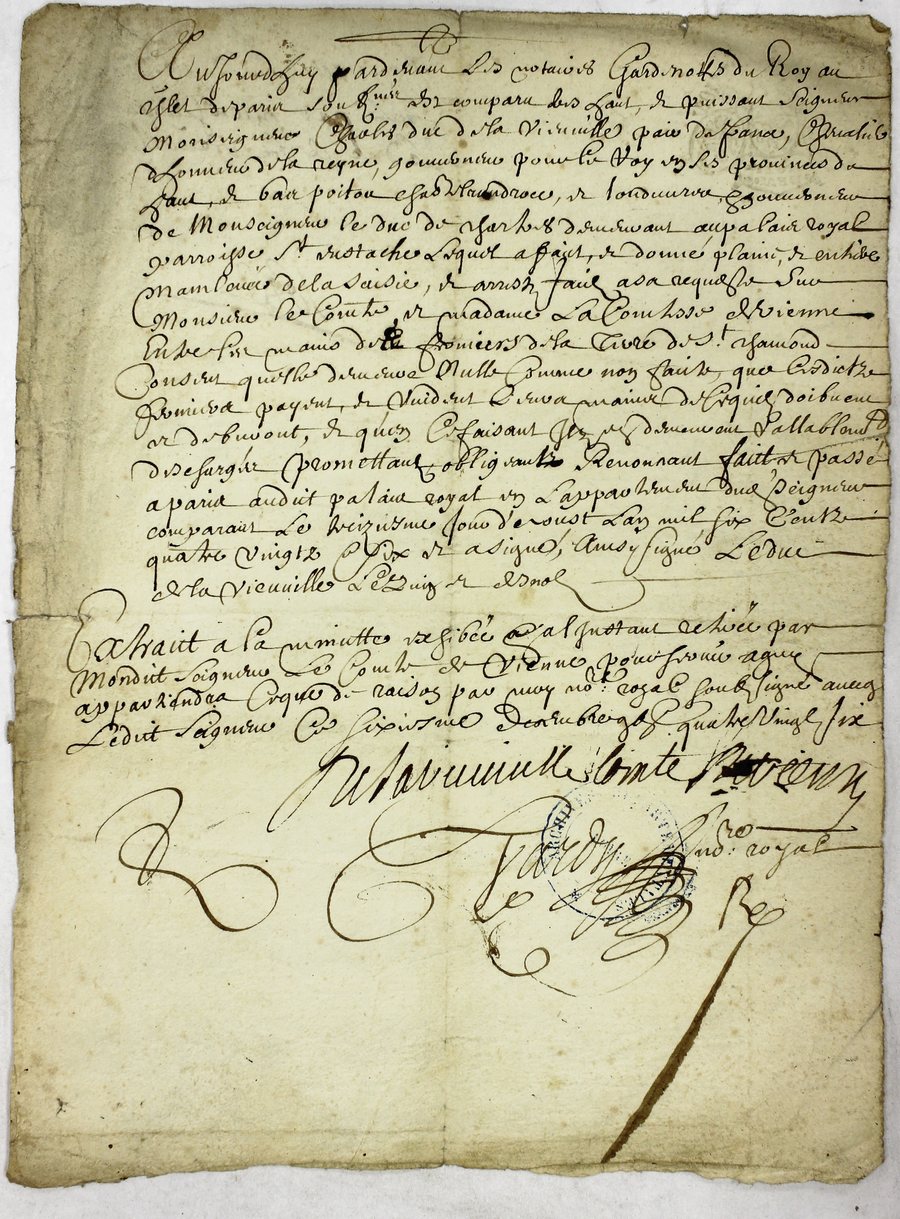 Aujourdhuy pardevant Les notaires Gardenottes du Roy au
chlet de paris soubz.nez est comparu tres haut, et puissant Seigneur
Monseigneur Charles duc de la Vieuville pair defrance, Chevalier
dhonneur de la reyne, gouverneur pour le Roy en ses provinces du
haut, et bas poitou chatelleraudrois, et loudunois, gouverneur
de Monseigneur le duc de chartres demeurant au palais royal
parroisse St. eustache Lequel a faict, et donné plaine, et entiere
mainlevée de la saisie, et arrest faict a sa requeste Sur
Monsieur le Comte, et madame La Comtesse de vienne
Entre les mains des fermiers de la Terre de St. chamond
Consent quelle demeure Nulle Comme non faicte, que lesdicts
fermiers payent, et vuident Leurs mains de Ce quilz doibvent
et debvront, et quen Ce faisant ilz en demeurent vallablemt
deschargés promettant obligeant Renonçant faict et passé
a paris audict palais royal en Lappartement dud. Seigneur
comparant Le treiziesme Jour d'aoust Lan mil six Centz
quatre vingtz Six et a signé, Ainsy signé Leduc
de la Vieuville
Extraict a la minutte exhibée et a l'Instant retirée par
Mondit Seigneur Le Comte de Vienne pour servir a qui
appartiendra Ceque de raison par moy nore. royal soubsigné avecq
Ledict Seigneur Ce sixiesme decembre quatre Vingt Six
De la vieuville Comte De vienne
nore. royal